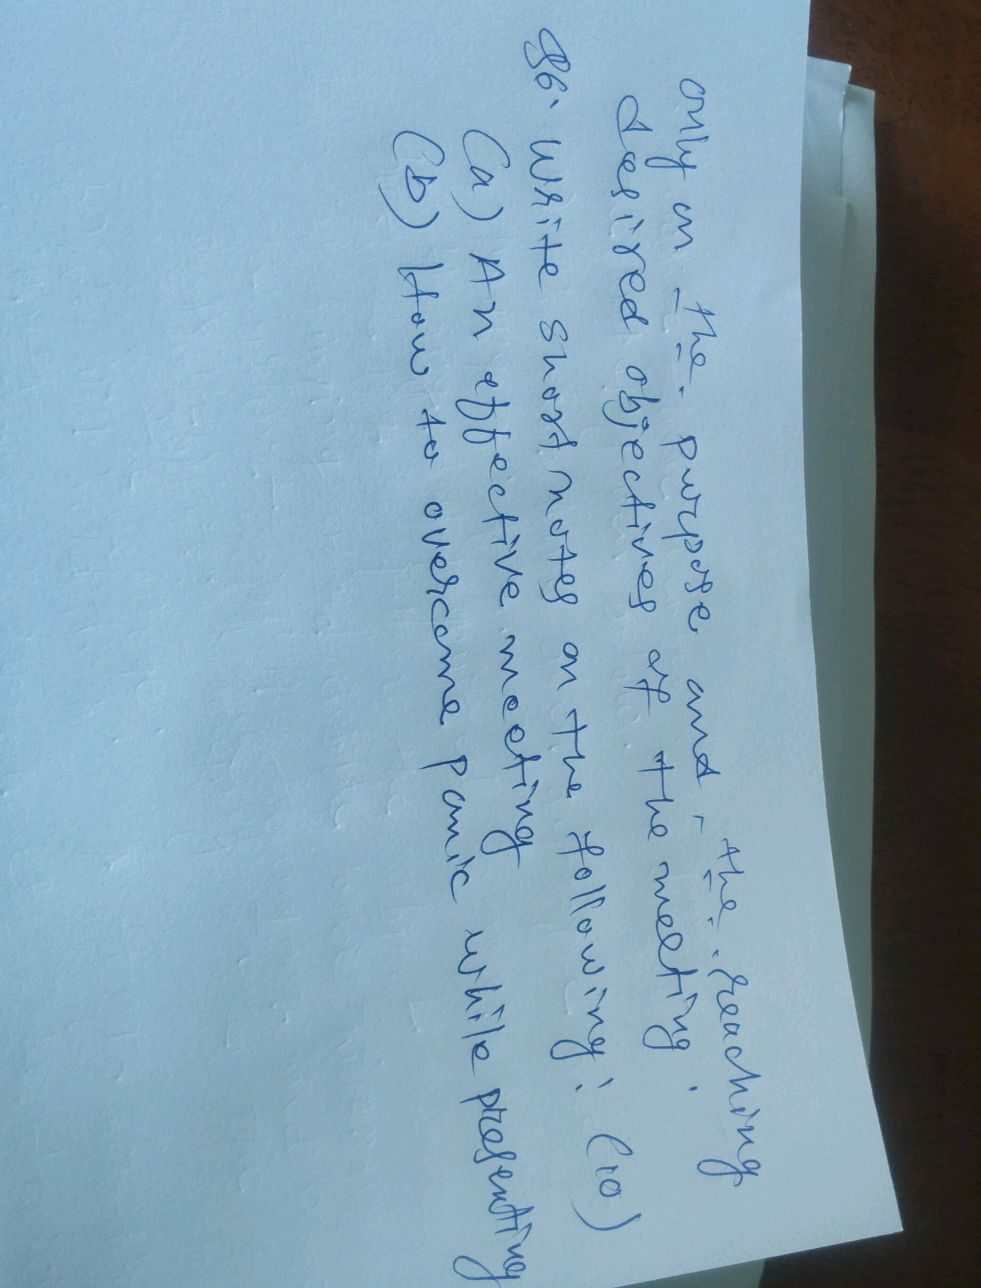 only on the purpose and the reaching
desired objectives of the meeting.
86. Write short notes on the following: (10)
(a) An effective meeting
(b) How to overcome panic while presenting